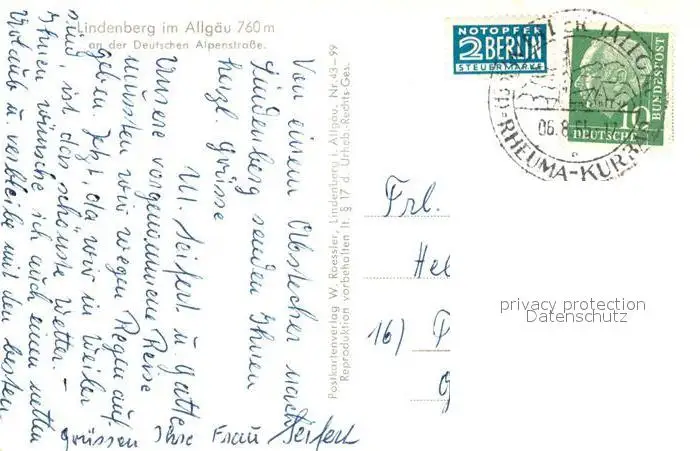 Lindenberg im Allgäu 760 m
an der Deutschen Alpenstraße.
Von einem Abstecher nach
Lindenberg senden Ihnen
herzl. Grüsse
M. Seifert u. Gatte
Unsere vorgenommene Reise
mussten wir wegen Regen auf-
geben. Jetzt, da wir in Weiler
sind, ist das schönste Wetter. –
Ihnen wünsche ich auch einen netten
Urlaub u. verbleibe mit den besten
Grüssen Ihre Frau Seifert
Postkartenverlag W. Roessler, Lindenberg i. Allgäu. Nr. 43-99
Reproduktion vorbehalten lt. § 17 d. Urheb.-Rechts-Ges.
NOTOPFER
2 BERLIN
STEUERMARKE
10
DEUTSCHE
BUNDESPOST
(ALLG
06.8.
RHEUMA-KUR
Frl.
Hel
16)
privacy protection
Datenschutz